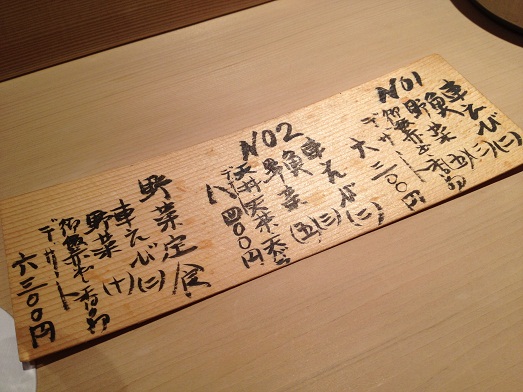 NO1
車えび(二)
魚(三)
野菜(五)
御飯 赤出 香の物
デザート
六三〇〇円
NO2
車えび(二)
魚(三)
野菜(五)
天丼 天茶
八四〇〇円
野菜定食
車えび(二)
野菜(十)
御飯 赤出 香の物
デザート
六三〇〇円